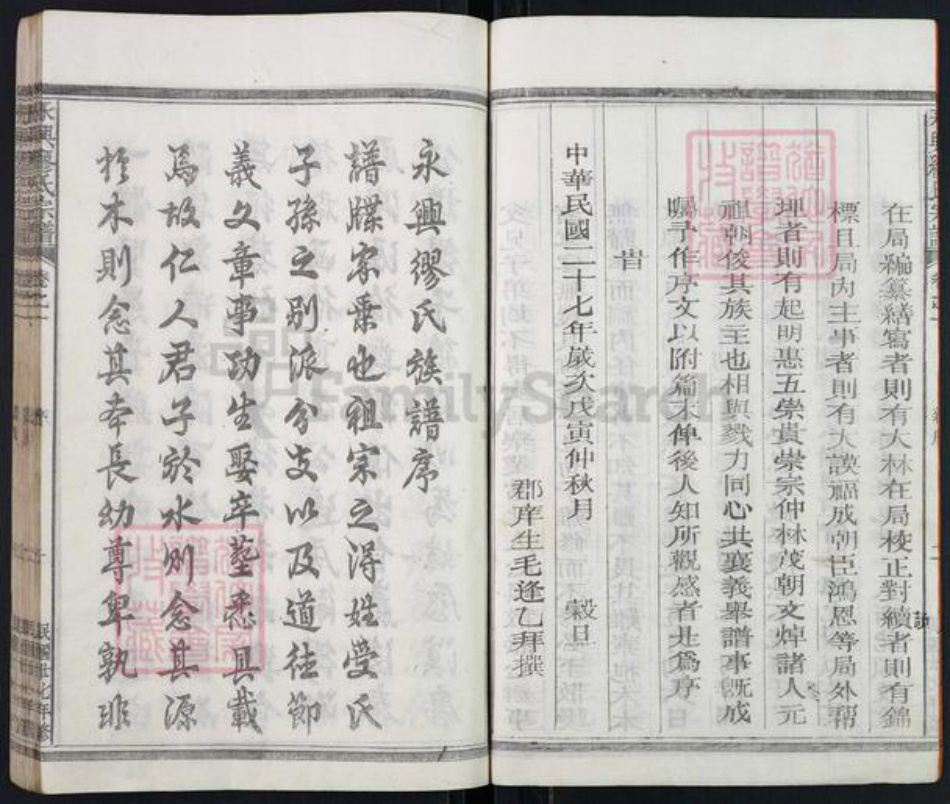 在局編纂繕寫者則有大林在局校正對續者則有錦
標且局內主事者則有大謨福成朝臣鴻恩等局外幫
理者則有起明惠五崇貴崇宗仲林茂朝文焯諸人元
祖朝俊其族主也相與戮力同心共襄義舉譜事既成
囑予作序文以附篇末俾後人知所觀感者此為序
旹
中華民國二十七年歲次戊寅仲秋月 穀旦
郡庠生毛逢乙拜撰
永興繆氏族譜序
譜牒家乗也祖宗之得姓受氏
子孫之別派分支以及道德節
義文章事功生娶卒塟悉具載
焉故仁人君子於水則念其源
於木則念其本長幼尊卑孰非
永興繆氏宗譜
民國廿七年修
FamilySearch